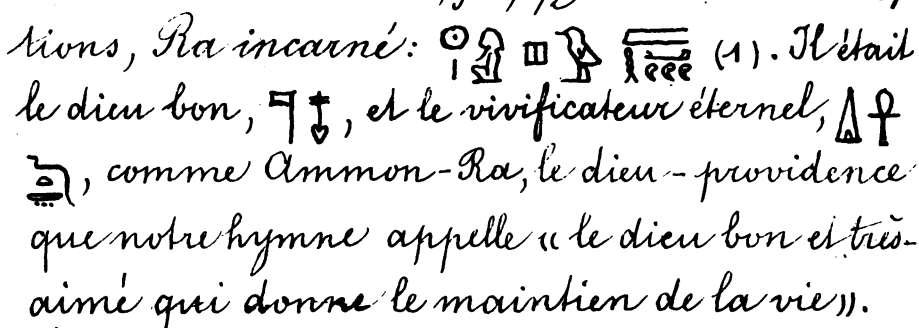 tions, Ra incarné: 𓇳𓏤𓀭 𓊪𓅮 𓇯 (1). Il était
le dieu bon, 𓊹𓄤, et le vivificateur éternel, 𓏙𓋹
𓆓𓏏𓇾, comme Ammon-Ra, le dieu-providence
que notre hymne appelle « le dieu bon et très-
aimé qui donne le maintien de la vie ».